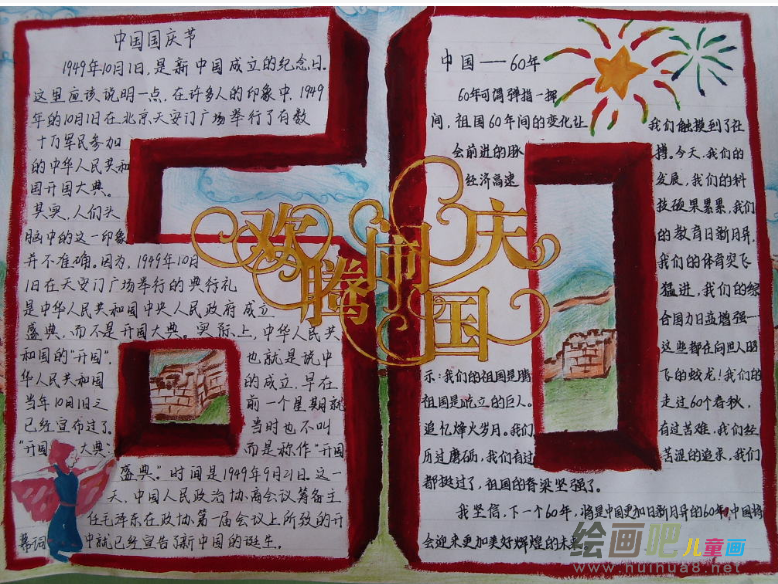 中国国庆节
1949年10月1日,是新中国成立的纪念日。
这里应该说明一点,在许多人的印象中,1949
年的10月1日在北京天安门广场举行了有数
十万军民参加
的中华人民共和
国开国大典。
其实,人们头
脑中的这一印象
并不准确。因为,1949年10月
1日在天安门广场举行的典行礼
是中华人民共和国中央人民政府成立
盛典,而不是开国大典。实际上,中华人民共
和国的"开国", 也就是说中
华人民共和国 的成立,早在
当年10月1日之 前一个星期就
已经宣布过了。 当时也不叫
"开国 大典; 而是称作"开国
盛典"。时间是1949年9月21日。这一
天,中国人民政治协商会议筹备主
任毛泽东在政协第一届会议上所致的开
幕词 中就已经宣告了新中国的诞生。
欢腾闹国庆
中国——60年
60年可谓弹指一挥
间,祖国60年间的变化让 我们触摸到了社
会前进的脉 搏。今天,我们的
经济高速 发展,我们的科
技硕果累累,我们
的教育日新月异,
我们的体育突飞
猛进,我们的综
合国力日益增强——
这些都在向世人昭
示:我们的祖国是腾 飞的蛟龙!我们的
祖国是屹立的巨人。 走过60个春秋,
追忆烽火岁月。我们 有过苦难,我们经
历过磨砺,我们有过 苦涩的追求,我们
都挺过了,祖国的脊梁坚强了。
我坚信,下一个60年,将是中国更加日新月异的60年,中国将
会迎来更加美好辉煌的未来
绘画吧儿童画
www.huihua8.net